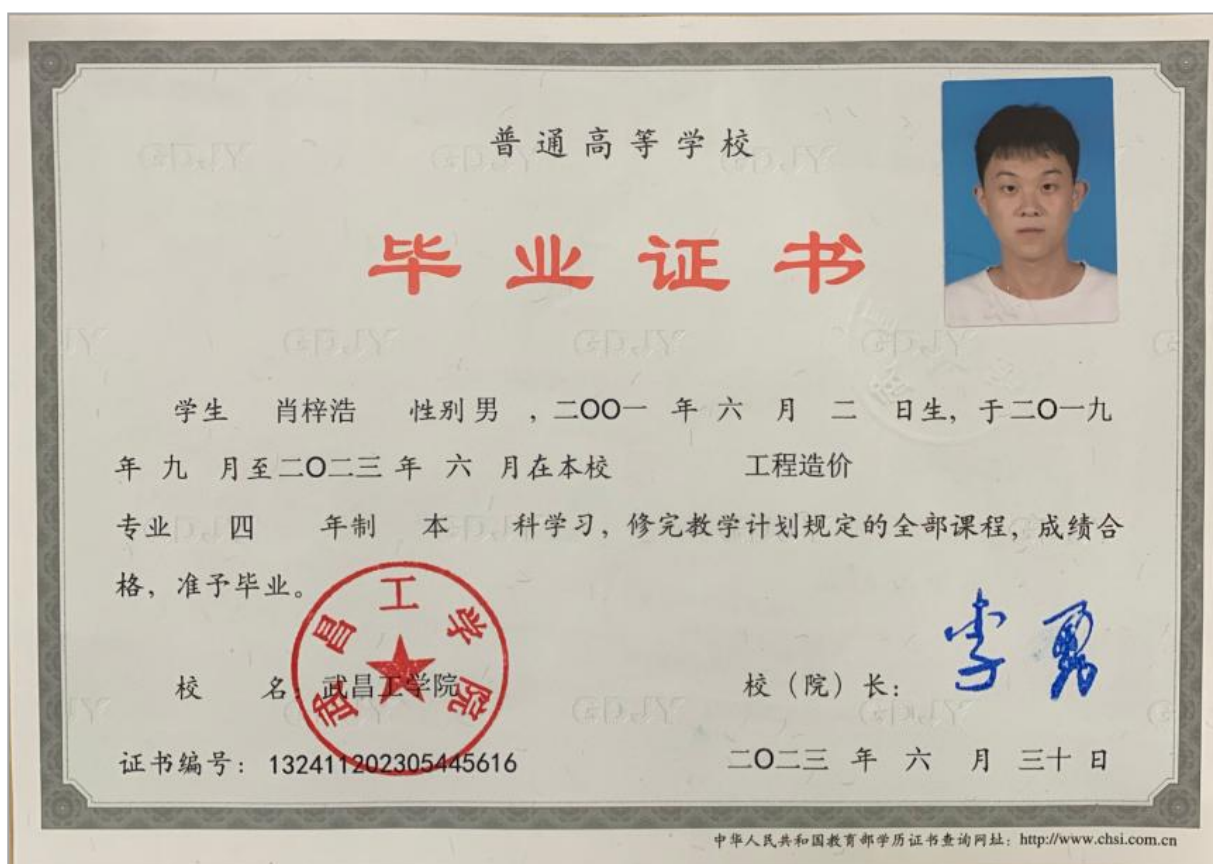 普通高等学校
毕业证书
学生 肖梓浩 性别 男 ，二OO一 年 六 月 二 日生，于二O一九
年 九 月至二O二三 年 六 月在本校 工程造价
专业 四 年制 本 科学习，修完教学计划规定的全部课程，成绩合
格，准予毕业。
武昌工学院
校 名：武昌工学院 校（院）长：李勇
证书编号：132411202305445616 二O二三 年 六 月 三十 日
中华人民共和国教育部学历证书查询网址：http://www.chsi.com.cn